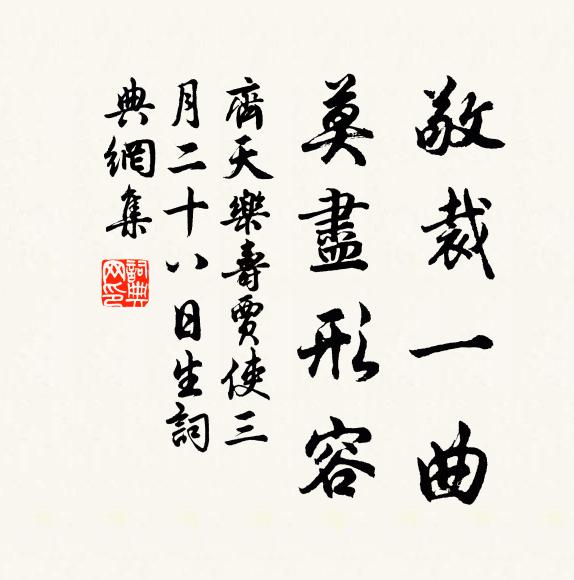 敬裁一曲
莫盡形容
齊天樂壽賈使三
月二十八日生詞
典網集
詞典网印